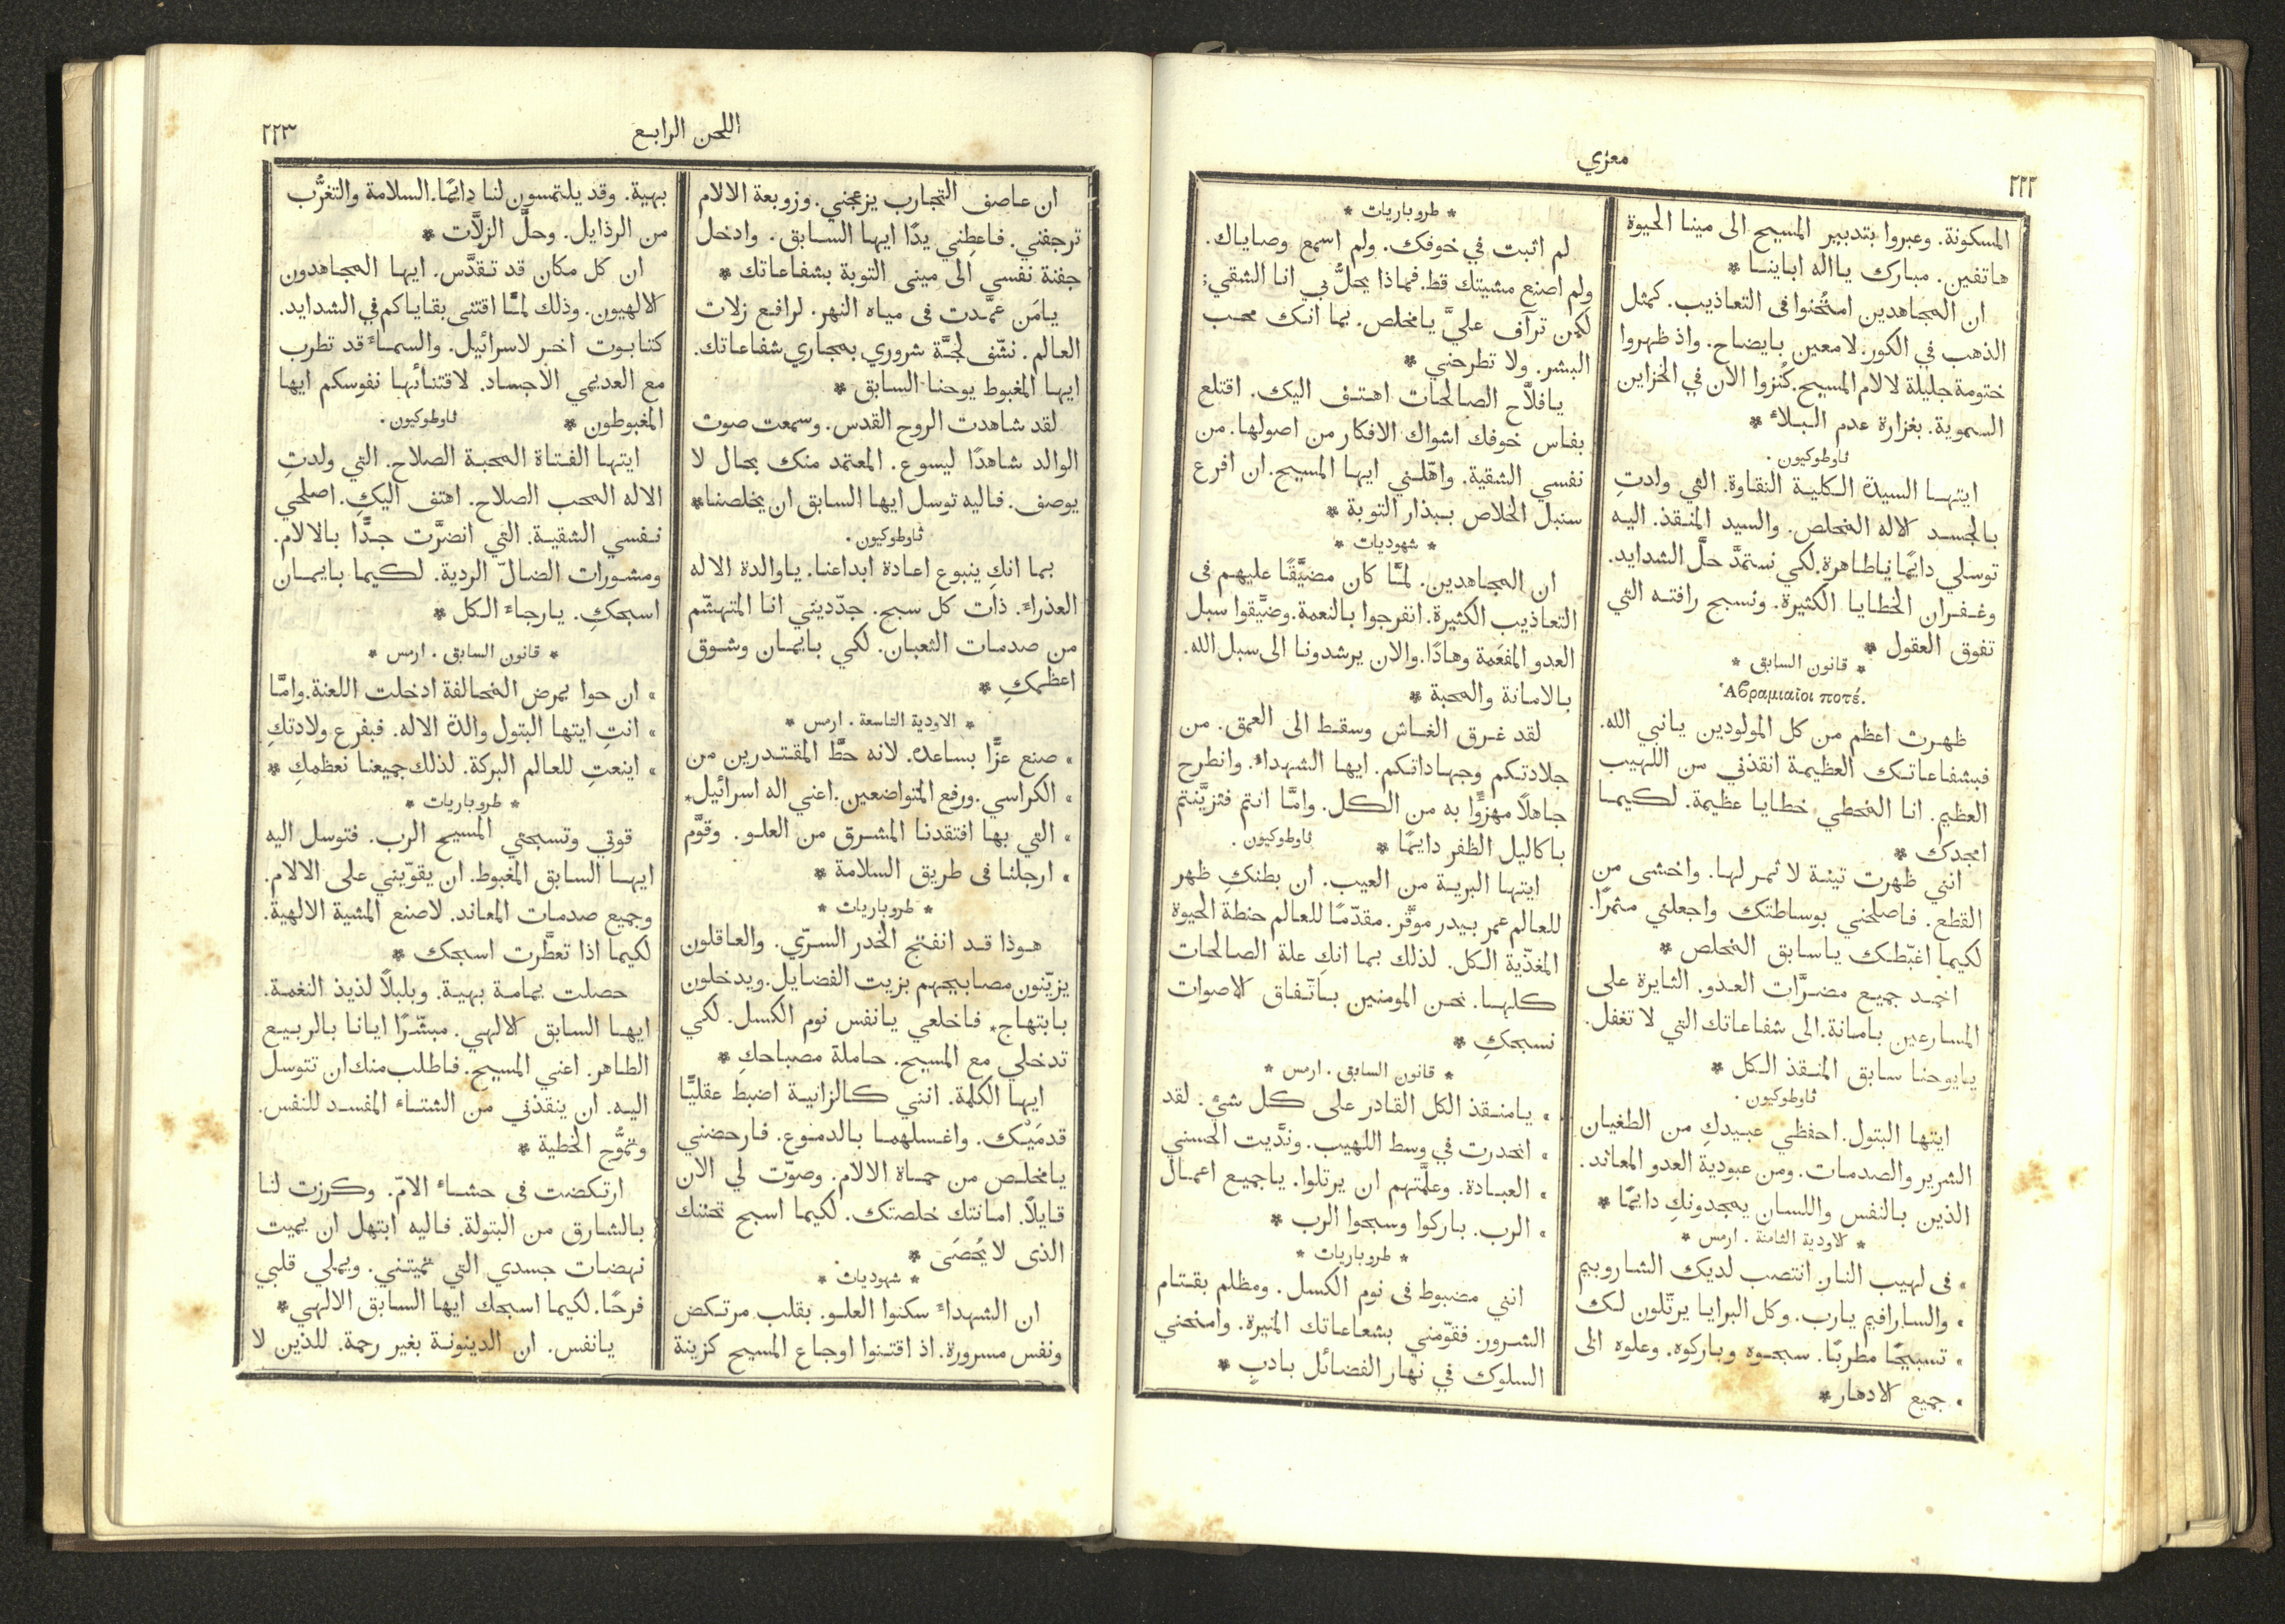 معزي
٢٢٢
المسكونة. وعبروا بتدبير المسيح الى مينا الحيوة
هاتفين. مبارك يااله اباينا *
ان المجاهدين امتُحنوا في التعاذيب. كمثل
الذهب في الكور. لامعين بايضاح. واذ ظهروا
ختومة جليلة لالام المسيح. كُنزوا الان في الخزاين
السموية. بغزارة عدم البلاء *
ثاوطوكيون.
ايتها السيدة الكلية النقاوة. التي ولدتِ
بالجسد الاله المخلص. والسيد المنقذ. اليه
توسلي دايمًا ياطاهرة. لكي نستمدَّ حلَّ الشدايد.
وغفران الخطايا الكثيرة. ونسبح رافته التي
تفوق العقول *
* قانون السابق *
Ἀβραμιαῖοι ποτέ.
ظهرت اعظم من كل المولودين يانبي الله.
فبشفاعاتك العظيمة انقذني من اللهيب
العظيم. انا المخطي خطايا عظيمة. لكيما
امجدك *
انني ظهرت تينة لا ثمر لها. واخشى من
القطع. فاصلحني بوساطتك واجعلني مثمرًا.
لكيما اغبّطك ياسابق المخلص *
اخمد جميع مضرَّات العدو. الثايرة على
المسارعين بامانة. الى شفاعاتك التي لا تغفل.
يايوحنا سابق المنقذ الكل *
ثاوطوكيون.
ايتها البتول. احفظي عبيدكِ من الطغيان
الشرير والصدمات. ومن عبودية العدو المعاند.
الذين بالنفس واللسان يمجدونكِ دايمًا *
* الاودية الثامنة. ارمس *
» في لهيب النار. انتصب لديك الشاروبيم
» والسارافيم يارب. وكل البرايا يرتّلون لك
» تسبيحًا مطربًا. سبحوه وباركوه. وعلوه الى
» جميع الادهار *
* طروباريات *
لم اثبت في خوفك. ولم اسمع وصاياك.
ولم اصنع مشيتك قط. فماذا يحلُّ بي انا الشقي؛
لكن ترآف عليَّ يامخلص. بما انك محب
البشر. ولا تطرحني *
يافلاَّح الصالحات اهتف اليك. اقتلع
بفاس خوفك اشواك الافكار من اصولها. من
نفسي الشقية. واهّلني ايها المسيح. ان افرع
سنبل الخلاص ببذار التوبة *
* شهوديات *
ان المجاهدين. لمَّا كان مضيَّقًا عليهم في
التعاذيب الكثيرة. انفرجوا بالنعمة. وضيَّقوا سبل
العدو المفعَمة وهادًا. والان يرشدونا الى سبل الله.
بالامانة والمحبة *
لقد غرق الغاش وسقط الى العمق. من
جلادتكم وجهاداتكم. ايها الشهداء. وانطرح
جاهلاً مهزوًّا به من الكل. وامَّا انتم فتزيَّنتم
باكاليل الظفر دايمًا * ثاوطوكيون.
ايتها البرية من العيب. ان بطنكِ ظهر
للعالم عمر بيدر موقَّر. مقدّمًا للعالم حنطة الحيوة
المغذّية الكل. لذلك بما انكِ علة الصالحات
كلها. نحن المومنين باتّفاق الاصوات
نسبحكِ *
* قانون السابق. ارمس *
» يامنقذ الكل القادر على كل شيٍ. لقد
» انحدرت في وسط اللهيب. وندَّيت الحسني
» العبادة. وعلَّمتهم ان يرتلوا. ياجميع اعمال
» الرب. باركوا وسبحوا الرب *
* طروباريات *
انني مضبوط في نوم الكسل. ومظلم بقتام
الشرور. فقوّمني بشعاعاتك المنيرة. وامنحني
السلوك في نهار الفضائل بادبٍ *
اللحن الرابع
٢٢٣
ان عاصف التجارب يزعجني. وزوبعة الالام
ترجفني. فاعطِني يدًا ايها السابق. وادخل
جفنة نفسي الى مينى التوبة بشفاعاتك *
يامَن عمَّدت في مياه النهر. لرافع زلات
العالم. نشّف لجَّة شروري بمجاري شفاعاتك.
ايها المغبوط يوحنا السابق *
لقد شاهدت الروح القدس. وسمعت صوت
الوالد شاهدًا ليسوع. المعتمد منك بحال لا
يوصف. فاليه توسل ايها السابق ان يخلصنا *
ثاوطوكيون.
بما انكِ ينبوع اعادة ابداعنا. ياوالدة الاله
العذراء. ذات كل سبح. جدّديني انا المتهشّم
من صدمات الثعبان. لكي بايمان وشوق
اعظمكِ *
* الاودية التاسعة. ارمس *
» صنع عزًّا بساعده. لانه حطَّ المقتدرين من
» الكراسي. ورفع المتواضعين. اعني اله اسرائيل *
» التي بها افتقدنا المشرق من العلو. وقوَّم
» ارجلنا في طريق السلامة *
* طروباريات *
هوذا قد انفتح الخدر السرّي. والعاقلون
يزيّنون مصابيحهم بزيت الفضايل. ويدخلون
بابتهاج * فاخلعي يانفس نوم الكسل. لكي
تدخلي مع المسيح. حاملة مصباحكِ *
ايها الكلمة. انني كالزانية اضبط عقليًّا
قدمَيْك. واغسلهما بالدموع. فارحضني
يامخلص من حماة الالام. وصوّت لي الان
قايلاً. امانتك خلصتك. لكيما اسبح تحننك
الذى لا يُحصَى *
* شهوديات *
ان الشهداء سكنوا العلو. بقلب مرتكض
ونفس مسرورة. اذ اقتنوا اوجاع المسيح كزينة
بهية. وقد يلتمسون لنا دايمًا. السلامة والتغرُّب
من الرذايل. وحلَّ الزلاَّت *
ان كل مكان قد تقدَّس. ايها المجاهدون
الالهيون. وذلك لمَّا اقتنى بقاياكم في الشدايد.
كتابوت اخر لاسرائيل. والسماء قد تطرب
مع العديمي الاجساد. لاقتنائها نفوسكم ايها
المغبوطون * ثاوطوكيون.
ايتها الفتاة المحبة الصلاح. التي ولدتِ
الاله المحب الصلاح. اهتف اليكِ. اصلحي
نفسي الشقية. التي انضرَّت جدًّا بالالام.
ومشورات الضالّ الردية. لكيما بايمان
اسبحكِ. يارجاء الكل *
* قانون السابق. ارمس *
» ان حوا بمرض المخالفة ادخلت اللعنة. وامَّا
» انتِ ايتها البتول والدة الاله. فبفرع ولادتكِ
» اينعتِ للعالم البركة. لذلك جميعنا نعظمكِ *
* طروباريات *
قوتي وتسبحتي المسيح الرب. فتوسل اليه
ايها السابق المغبوط. ان يقوّيني على الالام.
وجميع صدمات المعاند. لاصنع المشية الالهية.
لكيما اذا تعطَّرت اسبحك *
حصلت يمامة بهية. وبلبلاً لذيذ النغمة.
ايها السابق الالهي. مبشّرًا ايانا بالربيع
الطاهر. اعني المسيح. فاطلب منك ان تتوسل
اليه. ان ينقذني من الشتاء المفسد للنفس.
وتموُّج الخطية *
ارتكضت في حشاء الامّ. وكرزت لنا
بالشارق من البتولة. فاليه ابتهل ان يميت
نهضات جسدي التي تميتني. ويملي قلبي
فرحًا. لكيما اسبحك ايها السابق الالهي *
يانفس. ان الدينونة بغير رحمة. للذين لا